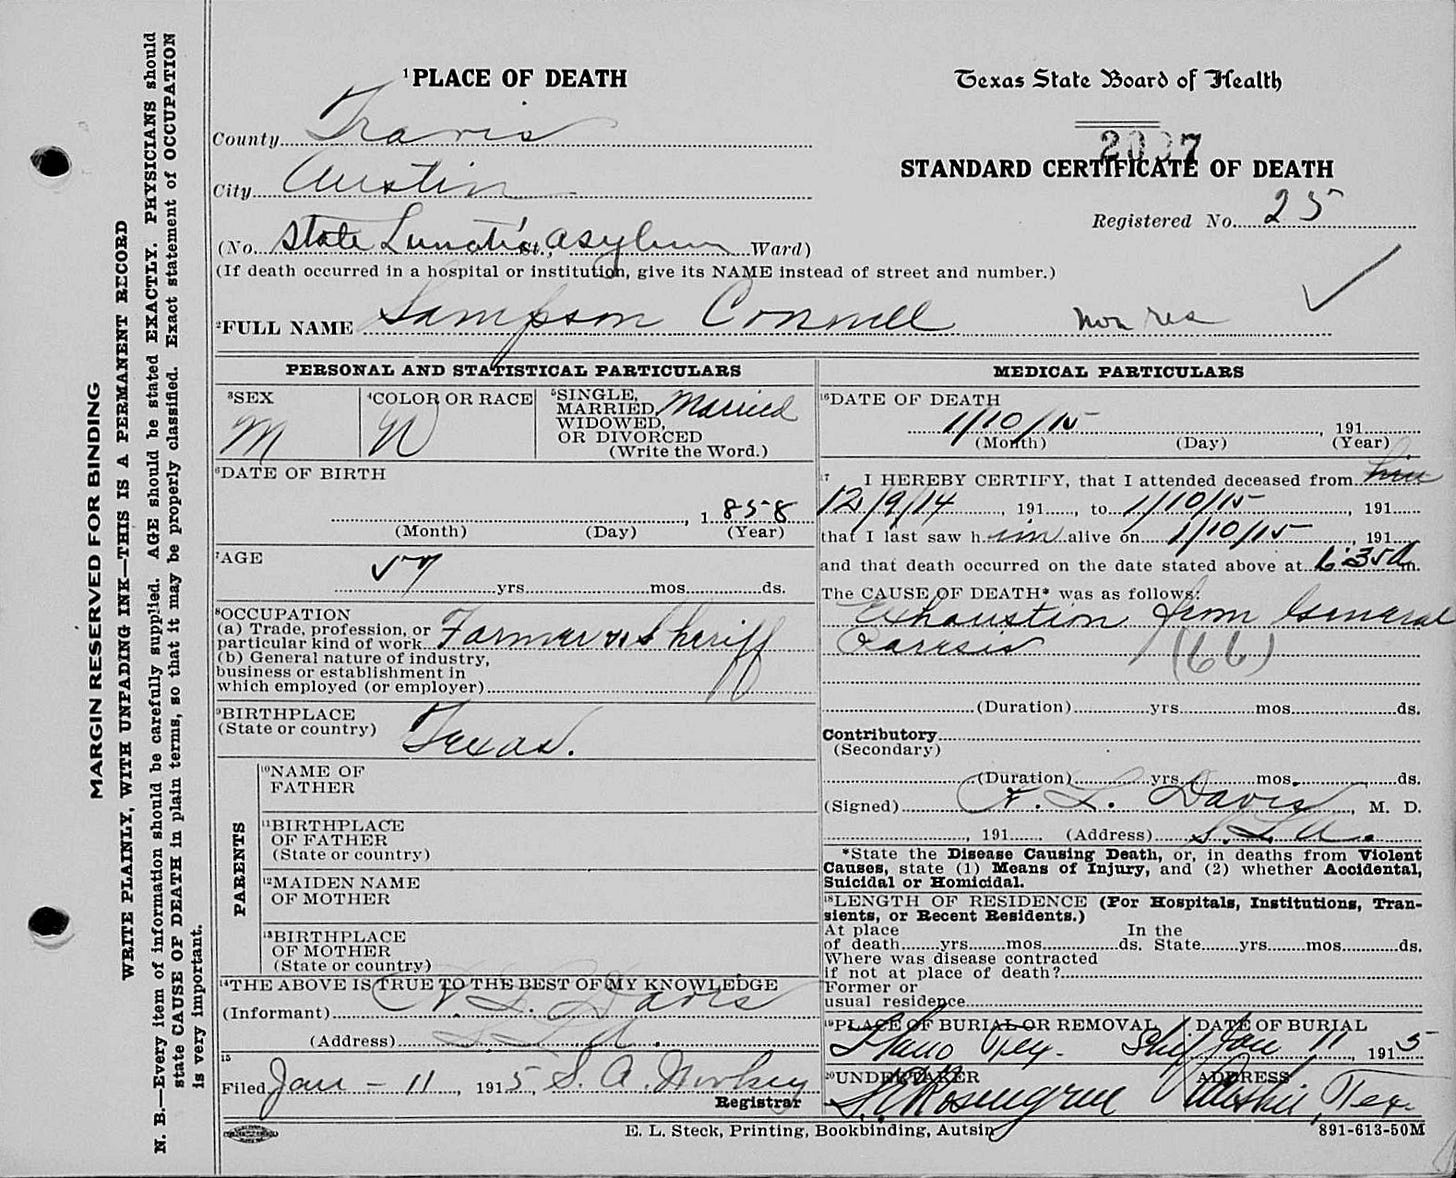 MARGIN RESERVED FOR BINDING
WRITE PLAINLY, WITH UNFADING INK—THIS IS A PERMANENT RECORD
N. B.—Every item of information should be carefully supplied. AGE should be stated EXACTLY. PHYSICIANS should
state CAUSE OF DEATH in plain terms, so that it may be properly classified. Exact statement of OCCUPATION
is very important.
1 PLACE OF DEATH
County Travis
City Austin
(No. State Lunatic St., Asylum Ward)
(If death occurred in a hospital or institution, give its NAME instead of street and number.)
Texas State Board of Health
STANDARD CERTIFICATE OF DEATH
Registered No. 25
2 FULL NAME Sampson Connell Non res
PERSONAL AND STATISTICAL PARTICULARS
3 SEX
M
4 COLOR OR RACE
W
5 SINGLE,
MARRIED, Married
WIDOWED,
OR DIVORCED
(Write the Word.)
6 DATE OF BIRTH
, 1 858
(Month) (Day) (Year)
7 AGE
57 yrs. mos. ds.
8 OCCUPATION
(a) Trade, profession, or
particular kind of work Farmer & Sheriff
(b) General nature of industry,
business or establishment in
which employed (or employer)
9 BIRTHPLACE
(State or country) Texas.
PARENTS
10 NAME OF
FATHER
11 BIRTHPLACE
OF FATHER
(State or country)
12 MAIDEN NAME
OF MOTHER
13 BIRTHPLACE
OF MOTHER
(State or country)
14 THE ABOVE IS TRUE TO THE BEST OF MY KNOWLEDGE
(Informant) Davis
(Address) S. L. A.
15
Filed Jan - 11, 1915, S. A.
Registrar
MEDICAL PARTICULARS
16 DATE OF DEATH
1/10/15 , 191
(Month) (Day) (Year)
17 I HEREBY CERTIFY, that I attended deceased from him
12/9/14, 191, to 1/10/15, 191
that I last saw h im alive on 1/10/15, 191
and that death occurred on the date stated above at m.
The CAUSE OF DEATH* was as follows:
Exhaustion from General
Paresis (66)
(Duration) yrs. mos. ds.
Contributory
(Secondary)
(Duration) yrs. mos. ds.
(Signed) Davis, M. D.
, 191 (Address) S. L. A.
*State the Disease Causing Death, or, in deaths from Violent
Causes, state (1) Means of Injury, and (2) whether Accidental,
Suicidal or Homicidal.
18 LENGTH OF RESIDENCE (For Hospitals, Institutions, Tran-
sients, or Recent Residents.)
At place In the
of death yrs. mos. ds. State yrs. mos. ds.
Where was disease contracted
if not at place of death?
Former or
usual residence
19 PLACE OF BURIAL OR REMOVAL DATE OF BURIAL
Tex. Jan 11, 1915
20 UNDERTAKER ADDRESS
Rosengren Austin, Tex.
E. L. Steck, Printing, Bookbinding, Autsin
891-613-50M